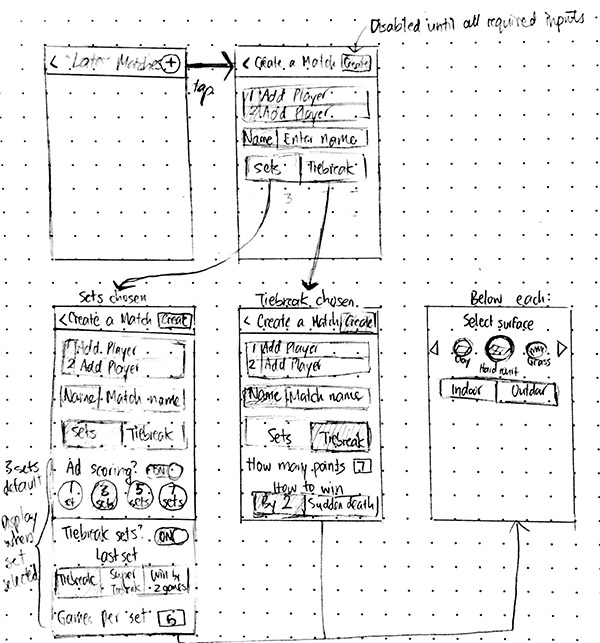 Disabled until all required inputs
< Later Matches +
tap
< Create a Match Create
1 Add Player
2 Add Player
Name Enter name
Sets Tiebreak
3
Sets chosen
< Create a Match Create
1 Add Player
2 Add Player
Name Match name
Sets Tiebreak
3 sets
default
Display
when
set
selected
Ad scoring? ON
1 set
3 sets
5 sets
7 sets
Tiebreak sets? ON
Last set
Tiebreak Super Tiebreak Win by 2 games
Games per set 6
Tiebreak chosen
< Create a Match Create
1 Add Player
2 Add Player
Name Match name
Sets Tiebreak
How many points 7
How to win
By 2 Sudden death
Below each:
Select surface
Clay Hard court Grass
Indoor Outdoor